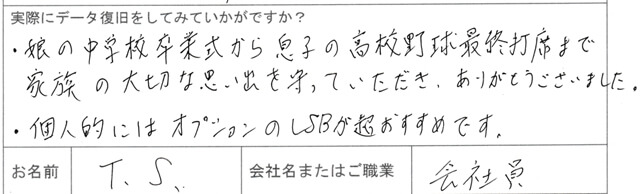 実際にデータ復旧をしてみていかがですか？
・娘の中学校卒業式から息子の高校野球最終打席まで
家族の大切な思い出を守っていただき、ありがとうございました。
・個人的にはオプションのLSBが超おすすめです。
お名前 T. S. 会社名またはご職業 会社員